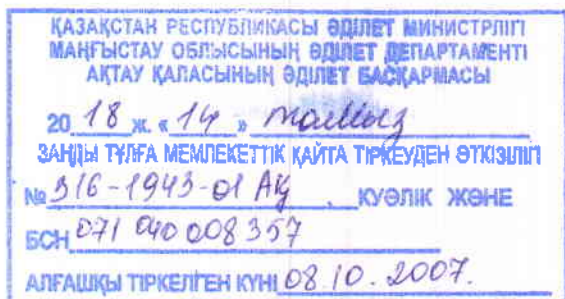 ҚАЗАҚСТАН РЕСПУБЛИКАСЫ ӘДІЛЕТ МИНИСТРЛІГІ
МАҢҒЫСТАУ ОБЛЫСЫНЫҢ ӘДІЛЕТ ДЕПАРТАМЕНТІ
АҚТАУ ҚАЛАСЫНЫҢ ӘДІЛЕТ БАСҚАРМАСЫ
20 18 ж. «14» тамыз
ЗАҢДЫ ТҰЛҒА МЕМЛЕКЕТТІК ҚАЙТА ТІРКЕУДЕН ӨТКІЗІЛІП
№ 316-1943-01 АҚ, КУӘЛІК ЖӘНЕ
БСН 071 040 008 357
АЛҒАШҚЫ ТІРКЕЛГЕН КҮНІ 08.10.2007.